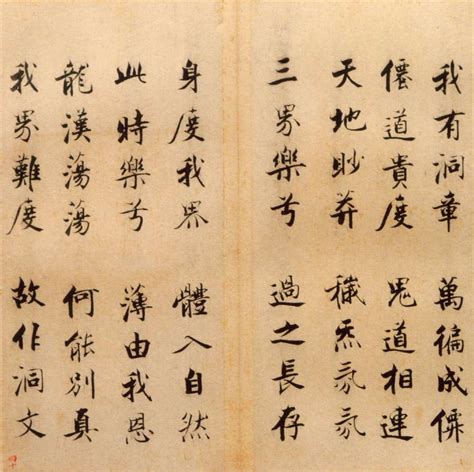 我有洞章 萬徧成僊
僊道貴度 鬼道相連
天地眇莽 穢炁氛氛
三界樂兮 過之長存
身度我界 體入自然
此時樂兮 薄由我恩
龍漢蕩蕩 何能別真
我界難度 故作洞文